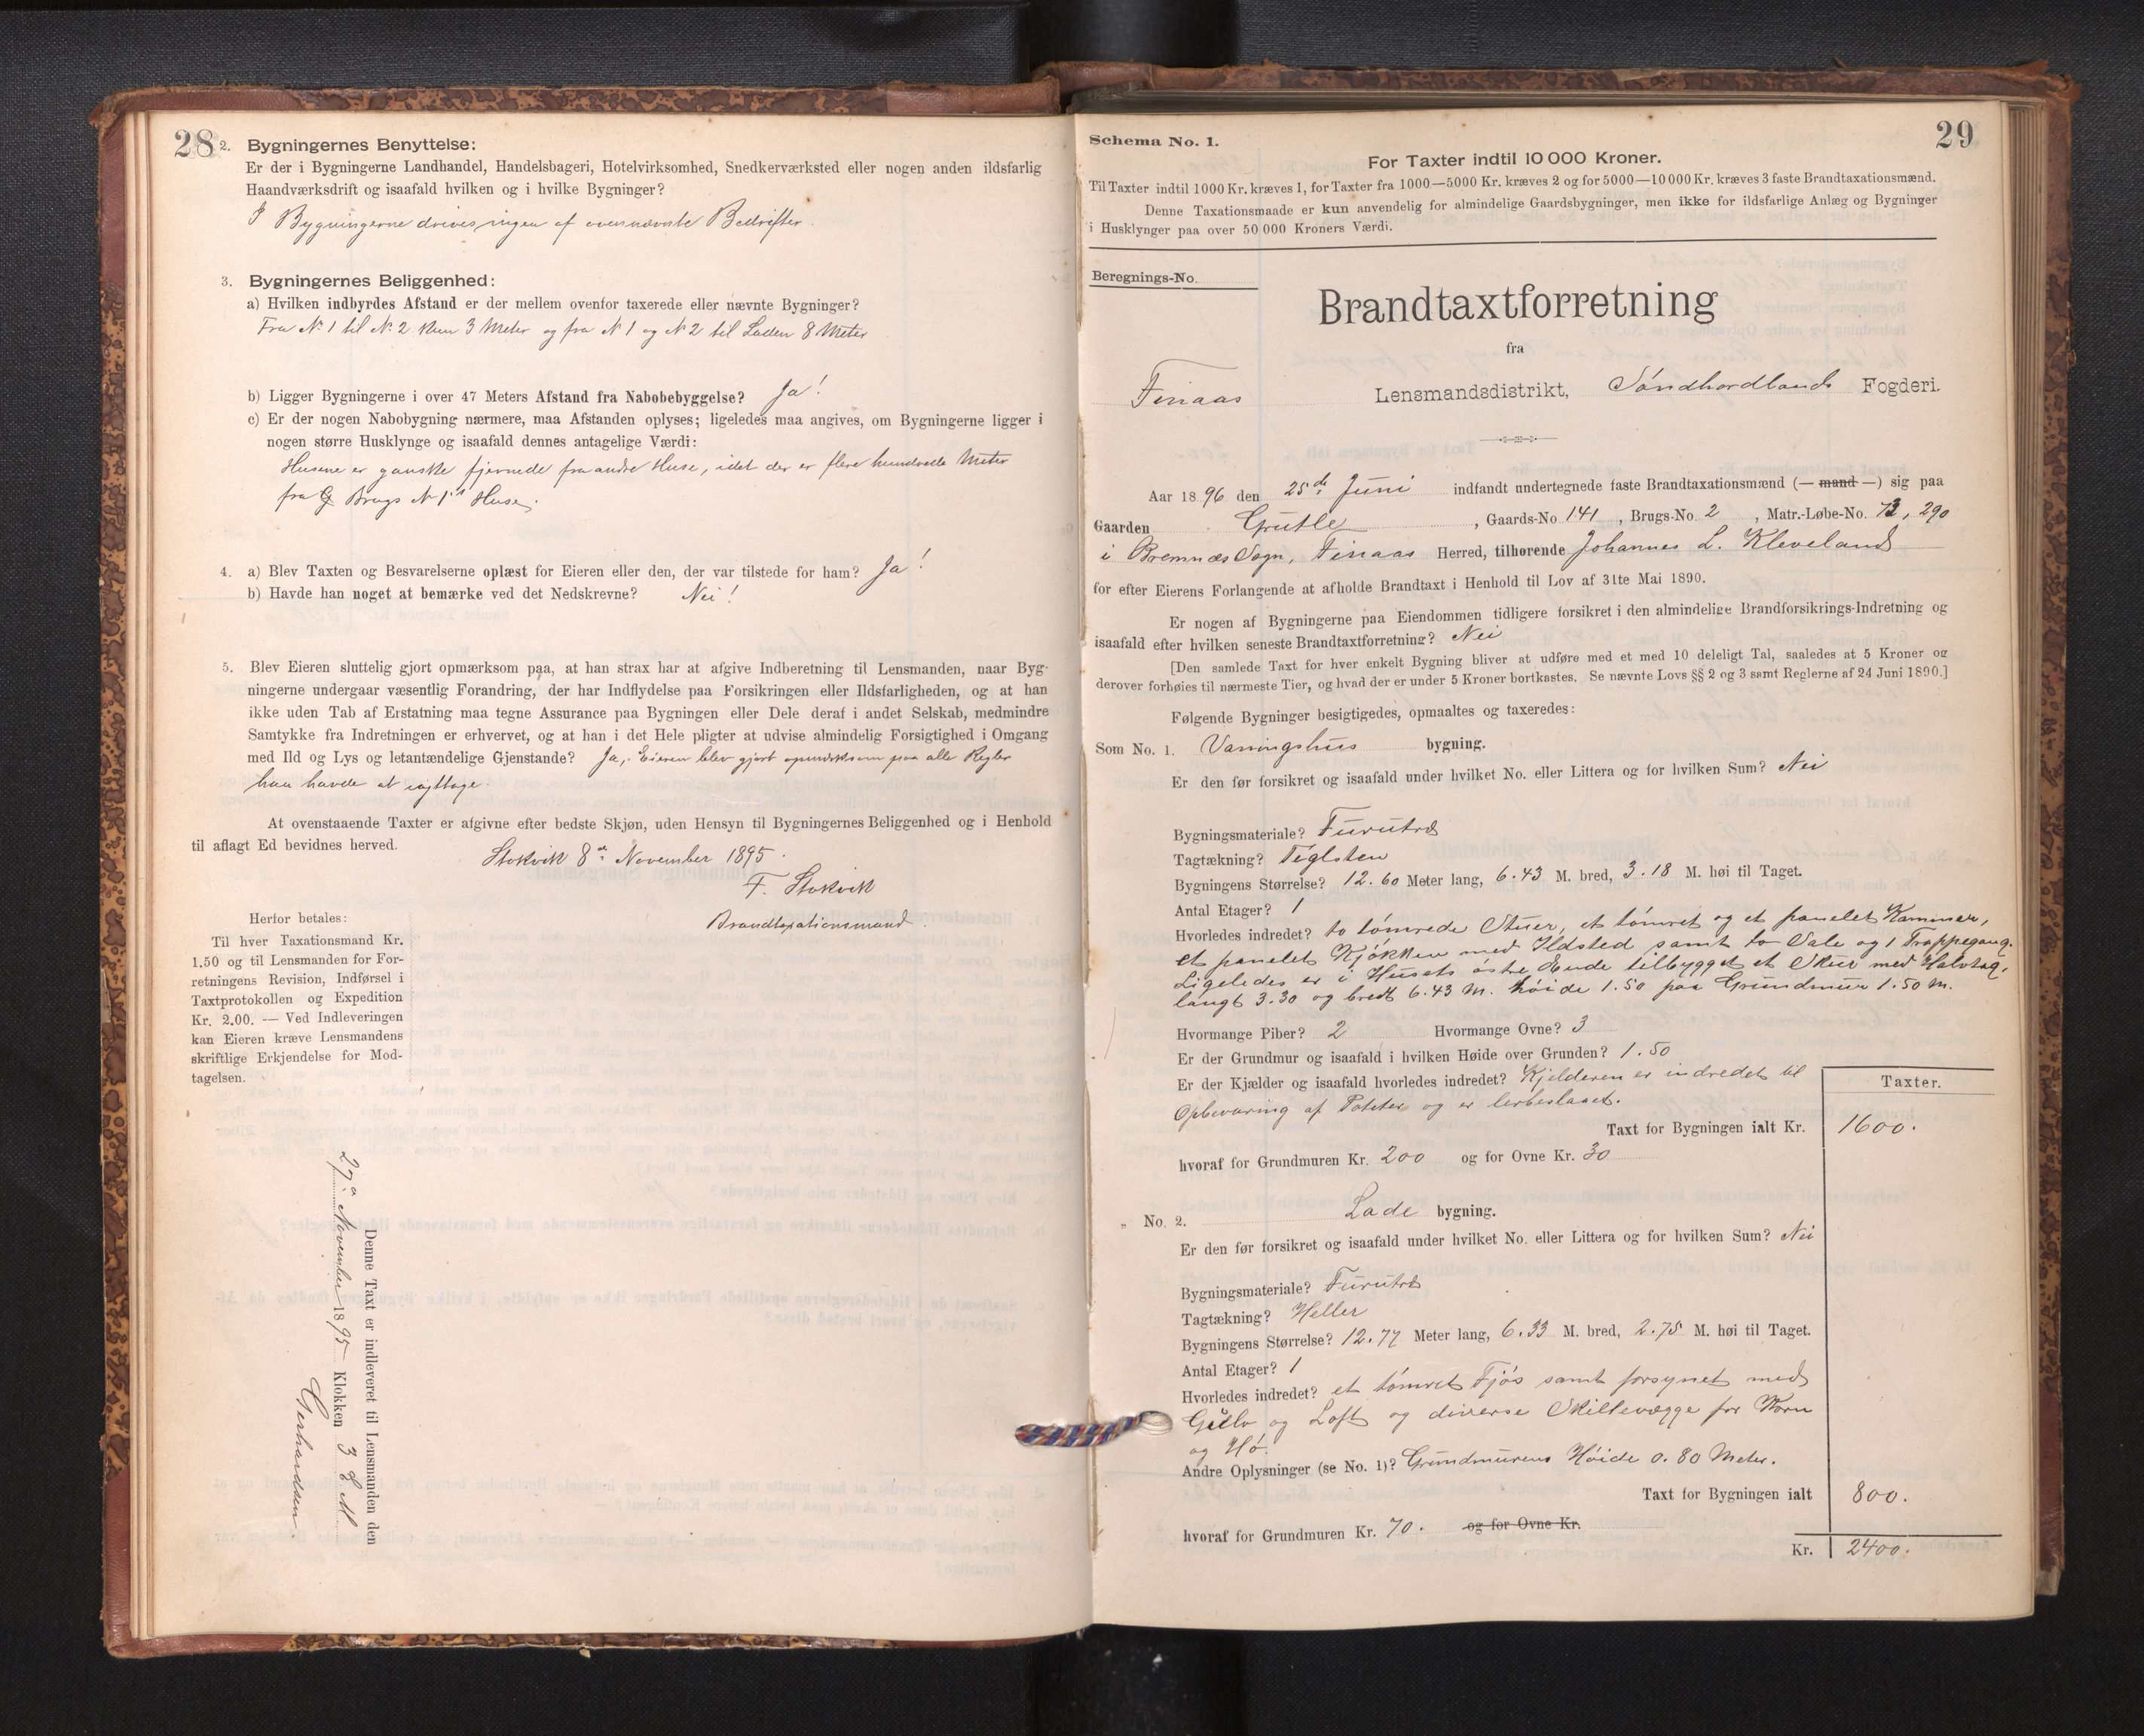 28
2. Bygningernes Benyttelse:
Er der i Bygningerne Landhandel, Handelsbageri, Hotelvirksomhed, Snedkerværksted eller nogen anden ildsfarlig
Haandværksdrift og isaafald hvilken og i hvilke Bygninger?
I Bygningerne drives ingen af ovennævnte Bedrifter.
3. Bygningernes Beliggenhed:
a) Hvilken indbyrdes Afstand er der mellem ovenfor taxerede eller nævnte Bygninger?
Fra N. 1 til N. 2 kun 3 Meter og fra N 1 og N 2 til Laden 8 Meter
b) Ligger Bygningerne i over 47 Meters Afstand fra Nabobebyggelse? Ja!
c) Er der nogen Nabobygning nærmere, maa Afstanden oplyses; ligeledes maa angives, om Bygningerne ligger i
nogen større Husklynge og isaafald dennes antagelige Værdi:
Husene er ganske fjernede fra andre Huse, idet der er flere hundrede Meter
fra Brugs N 1's Huse.
4. a) Blev Taxten og Besvarelserne oplæst for Eieren eller den, der var tilstede for ham? Ja!
b) Havde han noget at bemærke ved det Nedskrevne? Nei!
5. Blev Eieren sluttelig gjort opmærksom paa, at han strax har at afgive Indberetning til Lensmanden, naar Byg-
ningerne undergaar væsentlig Forandring, der har Indflydelse paa Forsikringen eller Ildsfarligheden, og at han
ikke uden Tab af Erstatning maa tegne Assurance paa Bygningen eller Dele deraf i andet Selskab, medmindre
Samtykke fra Indretningen er erhvervet, og at han i det Hele pligter at udvise almindelig Forsigtighed i Omgang
med Ild og Lys og letantændelige Gjenstande? Ja, Eieren blev gjort opmærksom paa alle Regler
han havde at iagttage.
At ovenstaaende Taxter er afgivne efter bedste Skjøn, uden Hensyn til Bygningernes Beliggenhed og i Henhold
til aflagt Ed bevidnes herved.
Stokvik 8de November 1895.
F. Stokvik
Brandtaxationsmand.
Herfor betales:
Til hver Taxationsmand Kr.
1.50 og til Lensmanden for For-
retningens Revision, Indførsel i
Taxtprotokollen og Expedition
Kr. 2.00. — Ved Indleveringen
kan Eieren kræve Lensmandens
skriftlige Erkjendelse for Mod-
tagelsen.
Denne Taxt er indleveret til Lensmanden den
27de November 1895 Klokken 3 E M
Gerhardsen
29
Schema No. 1.
For Taxter indtil 10 000 Kroner.
Til Taxter indtil 1000 Kr. kræves 1, for Taxter fra 1000—5000 Kr. kræves 2 og for 5000—10 000 Kr. kræves 3 faste Brandtaxationsmænd.
Denne Taxationsmaade er kun anvendelig for almindelige Gaardsbygninger, men ikke for ildsfarlige Anlæg og Bygninger
i Husklynger paa over 50 000 Kroners Værdi.
Beregnings-No.
Brandtaxtforretning
fra
Finaas Lensmandsdistrikt, Søndhordlands Fogderi.
Aar 1896 den 25de Juni indfandt undertegnede faste Brandtaxationsmænd (— mand —) sig paa
Gaarden Grutle, Gaards-No 141, Brugs-No. 2, Matr.-Løbe-No. 73, 290
i Bremnæs Sogn, Finaas Herred, tilhørende Johannes L. Kleveland
for efter Eierens Forlangende at afholde Brandtaxt i Henhold til Lov af 31te Mai 1890.
Er nogen af Bygningerne paa Eiendommen tidligere forsikret i den almindelige Brandforsikrings-Indretning og
isaafald efter hvilken seneste Brandtaxtforretning? Nei
[Den samlede Taxt for hver enkelt Bygning bliver at udføre med et med 10 deleligt Tal, saaledes at 5 Kroner og
derover forhøies til nærmeste Tier, og hvad der er under 5 Kroner bortkastes. Se nævnte Lovs §§ 2 og 3 samt Reglerne af 24 Juni 1890.]
Følgende Bygninger besigtigedes, opmaaltes og taxeredes:
Som No. 1. Vaaningshus bygning.
Er den før forsikret og isaafald under hvilket No. eller Littera og for hvilken Sum? Nei
Bygningsmateriale? Furutræ
Tagtækning? Teglsten
Bygningens Størrelse? 12.60 Meter lang, 6.43 M. bred, 3.18 M. høi til Taget.
Antal Etager? 1
Hvorledes indredet? to tømrede Stuer, et tømret og et panelet Kammer,
et panelet Kjøkken med Ildsted samt to Sale og 1 Trappegang.
Ligeledes er i Husets østre Ende tilbygget et Skur med Halvtag,
langt 3.30 og bredt 6.43 M. høide 1.50 paa Grundmuur 1.50 M.
Hvormange Piber? 2 Hvormange Ovne? 3
Er der Grundmur og isaafald i hvilken Høide over Grunden? 1.50
Er der Kjælder og isaafald hvorledes indredet? Kjelderen er indredet til
Opbevaring af Poteter og er lerbeslaaet.
Taxter.
Taxt for Bygningen ialt Kr. 1600.
hvoraf for Grundmuren Kr. 200 og for Ovne Kr. 30
„ No. 2. Lade bygning.
Er den før forsikret og isaafald under hvilket No. eller Littera og for hvilken Sum? Nei
Bygningsmateriale? Furutræ
Tagtækning? Heller
Bygningens Størrelse? 12.77 Meter lang, 6.33 M. bred, 2.75 M. høi til Taget.
Antal Etager? 1
Hvorledes indredet? et tømret Fjøs samt forsynet med
Gulv og Loft og diverse Skillevægge for Korn
og Hø.
Andre Oplysninger (se No. 1)? Grundmurens Høide 0.80 Meter.
Taxt for Bygningen ialt 800.
hvoraf for Grundmuren Kr. 70. og for Ovne Kr.
Kr. 2400.